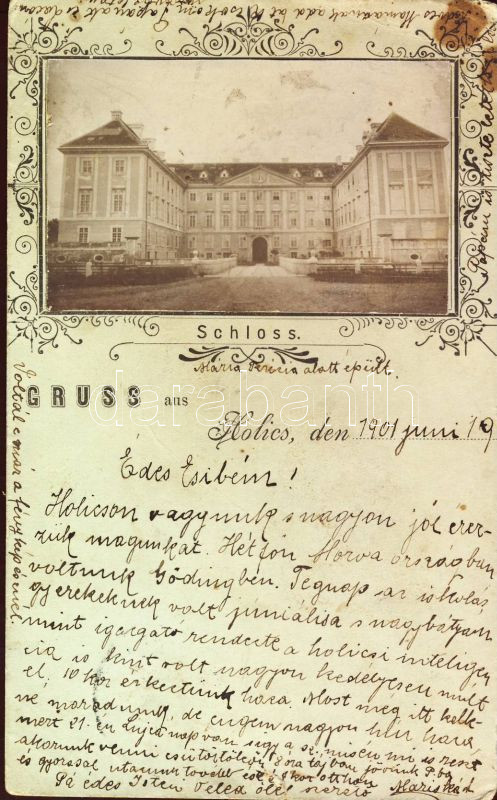 Schloss.
Mária Terézia alatt épült.
GRUSS aus
Holics, den 1901 juni 19
Édes Esikém!
Holicson vagyunk s nagyon jól érez-
zük magunkat. Hétfőn Morva országban
voltunk Gödingben. Tegnap az iskolás
gyerekeknek volt juniálisa s nagybátyám
mint igazgató rendezte a holicsi inteligen
cia is kint volt nagyon kedélyesen mult
el. 10 kor érkeztünk haza. Most még itt kelle-
ne maradnunk, de engem nagyon hiv haza,
mert 21.-én Lujza nap van s így a sz. misén mi is részt
akarunk venni csütörtökön 8 óra tájban jövünk P.ba
és gyorssal utazunk tovább
Pá édes Isten Veled ölel szerető Mariskád
Voltál e már a fényképésznél.
darabanth